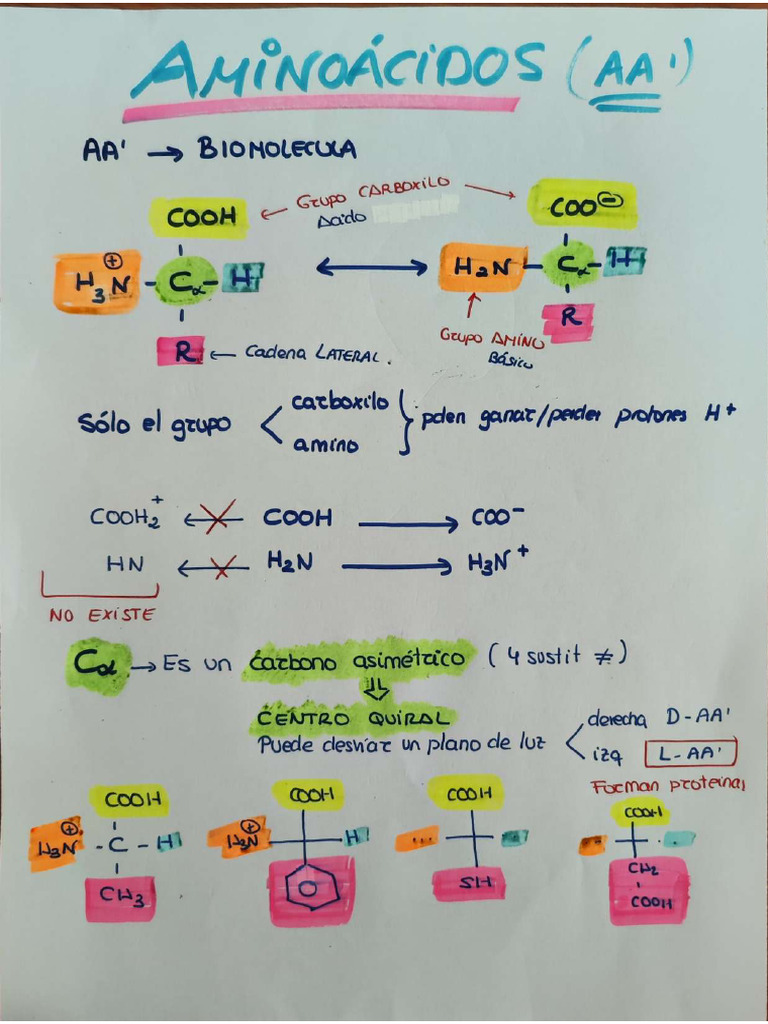 AMINOÁCIDOS (AA')
AA' → BIOMOLECULA
Grupo CARBOXILO
Acido
COOH
COO⊖
H₃N⊕ - Cα - H
H₂N - Cα - H
R ← Cadena LATERAL.
R
Grupo AMINO
Básico
Sólo el grupo < carboxilo
amino } pden ganar/perder protones H+
COOH₂⁺ ← COOH → COO⁻
HN ← H₂N → H₃N⁺
NO EXISTE
Cα → Es un carbono asimétrico (4 sustit ≠)
⇓
CENTRO QUIRAL
Puede desviar un plano de luz < derecha D-AA'
izq L-AA'
Forman proteinas
COOH
H₃N⊕ - C - H
CH₃
COOH
H₃N⊕ H
COOH
...
SH
COOH
CH₂
COOH